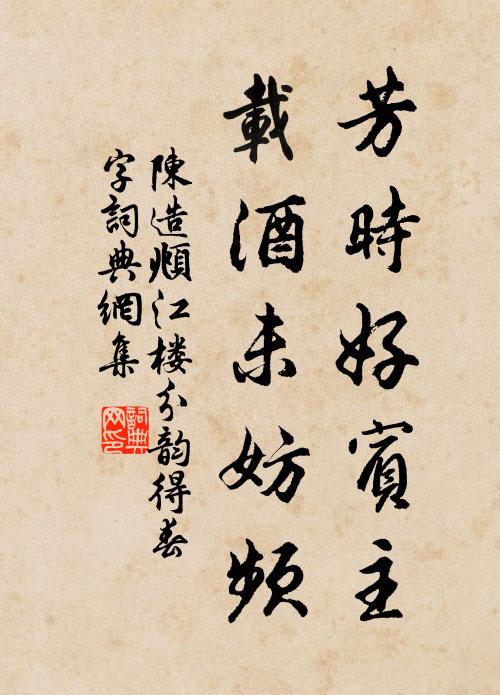 芳時好賓主
載酒未妨頻
陳造頫江楼分韵得春
字詞典網集
詞典网印